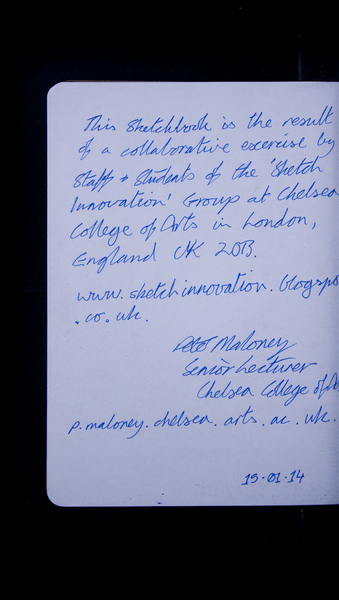 This Sketchbook is the result
of a collaborative exercise by
Staff + Students of the 'Sketch
Innovation' Group at Chelsea
College of Arts in London,
England UK 2013.
www.sketchinnovation.blogspo
.co.uk.
Pete Maloney
Senior Lecturer
Chelsea College of Ar
p.maloney.chelsea.arts.ac.uk.
15.01.14